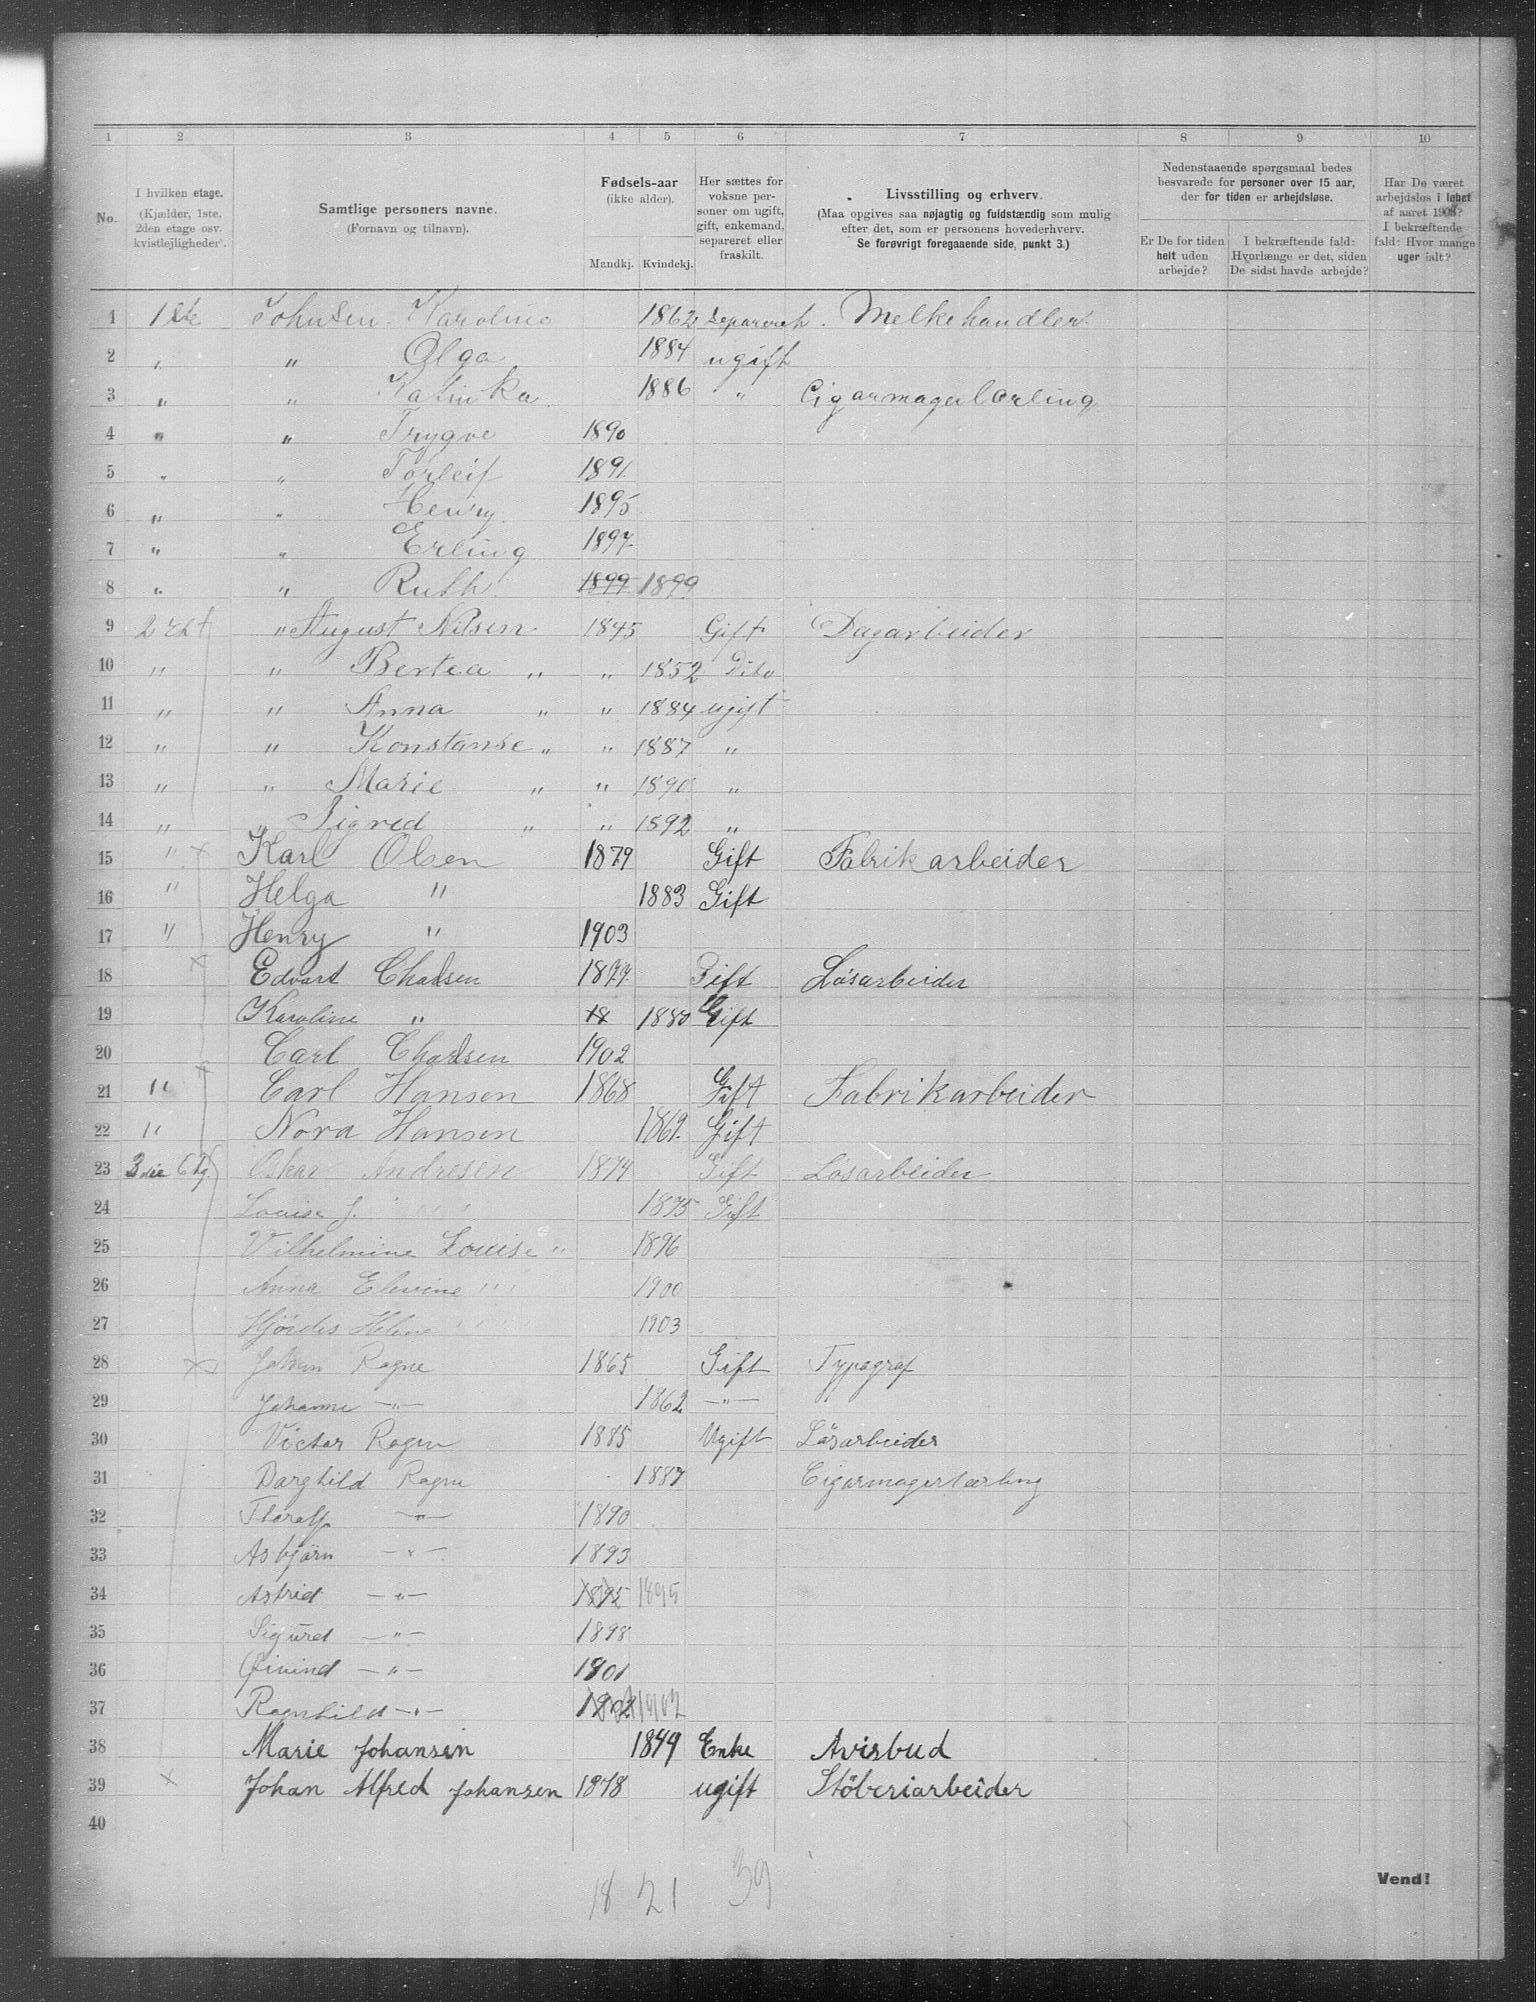 1 2 3 4 5 6 7 8 9 10
No.
I hvilken etage.
(Kjælder, 1ste, 2den etage osv. kvistlejligheder).
Samtlige personers navne.
(Fornavn og tilnavn).
Fødsels-aar
(ikke alder).
Mandkj. Kvindekj.
Her sættes for voksne personer om ugift, gift, enkemand, separeret eller fraskilt.
Livsstilling og erhverv.
(Maa opgives saa nøjagtig og fuldstændig som mulig efter det, som er personens hovederhverv.
Se forøvrigt foregaaende side, punkt 3.)
Nedenstaaende spørgsmaal bedes besvarede for personer over 15 aar, der for tiden er arbejdsløse.
Er De for tiden helt uden arbejde?
I bekræftende fald: Hvorlænge er det, siden De sidst havde arbejde?
Har De været arbejdsløs i løbet af aaret
I bekræftende fald: Hvor mange uger ialt?
1 1ste Johnsen Karoline 1862 Separeret. Melkehandler.
2 " " Olga 1884 ugift
3 " " Katinka 1886 " Cigarmagerlærling
4 " " Trygve 1890
5 " " Torleif 1891.
6 " " Henry 1895
7 " " Erling 1897.
8 " " Ruth 1899 1899
9 2 " August Nilsen 1845 Gift Dagarbeider
10 " " Bertea " " 1852 Dito
11 " " Anna " " 1884 ugift
12 " " Konstanse " " 1887 "
13 " " Marie " " 1890 "
14 " " Sigred " " 1892 "
15 " x Karl Olsen 1879 Gift Fabrikarbeider
16 " Helga " 1883 Gift
17 " Henry " 1903
18 x Edvart 1879 Gift Løsarbeider
19 Karoline " 18 1880 Gift
20 Carl 1902
21 " x Carl Hansen 1868 Gift Fabrikarbeider
22 " Nora Hansen 1861. Gift
23 3die Etg. Oskar Andresen 1874 Gift Løsarbeider
24 Louise J. " 1875 Gift
25 Vilhelmine Louise " 1896
26 Anna Elevine " 1900
27 Hjördis Helene " 1903
28 x Johan Ragne 1865 Gift Typograf
29 Johanne —"— 1862 —"—
30 Victor Ragne 1885 Ugift Lösarbeider
31 Barghild Ragne 1887 Cigarmagerlærling
32 Thoralf —"— 1890
33 Asbjörn —"— 1893
34 Astrid —"— 1895 1895
35 Sigurd —"— 1898
36 Øivind —"— 1901
37 Ragnhild —"— 1902 1902
38 Marie Johansen 1849 Enke Avisbud
39 x Johan Alfred Johansen 1878 ugift Stöberiarbeider
40
18 21 39
Vend!